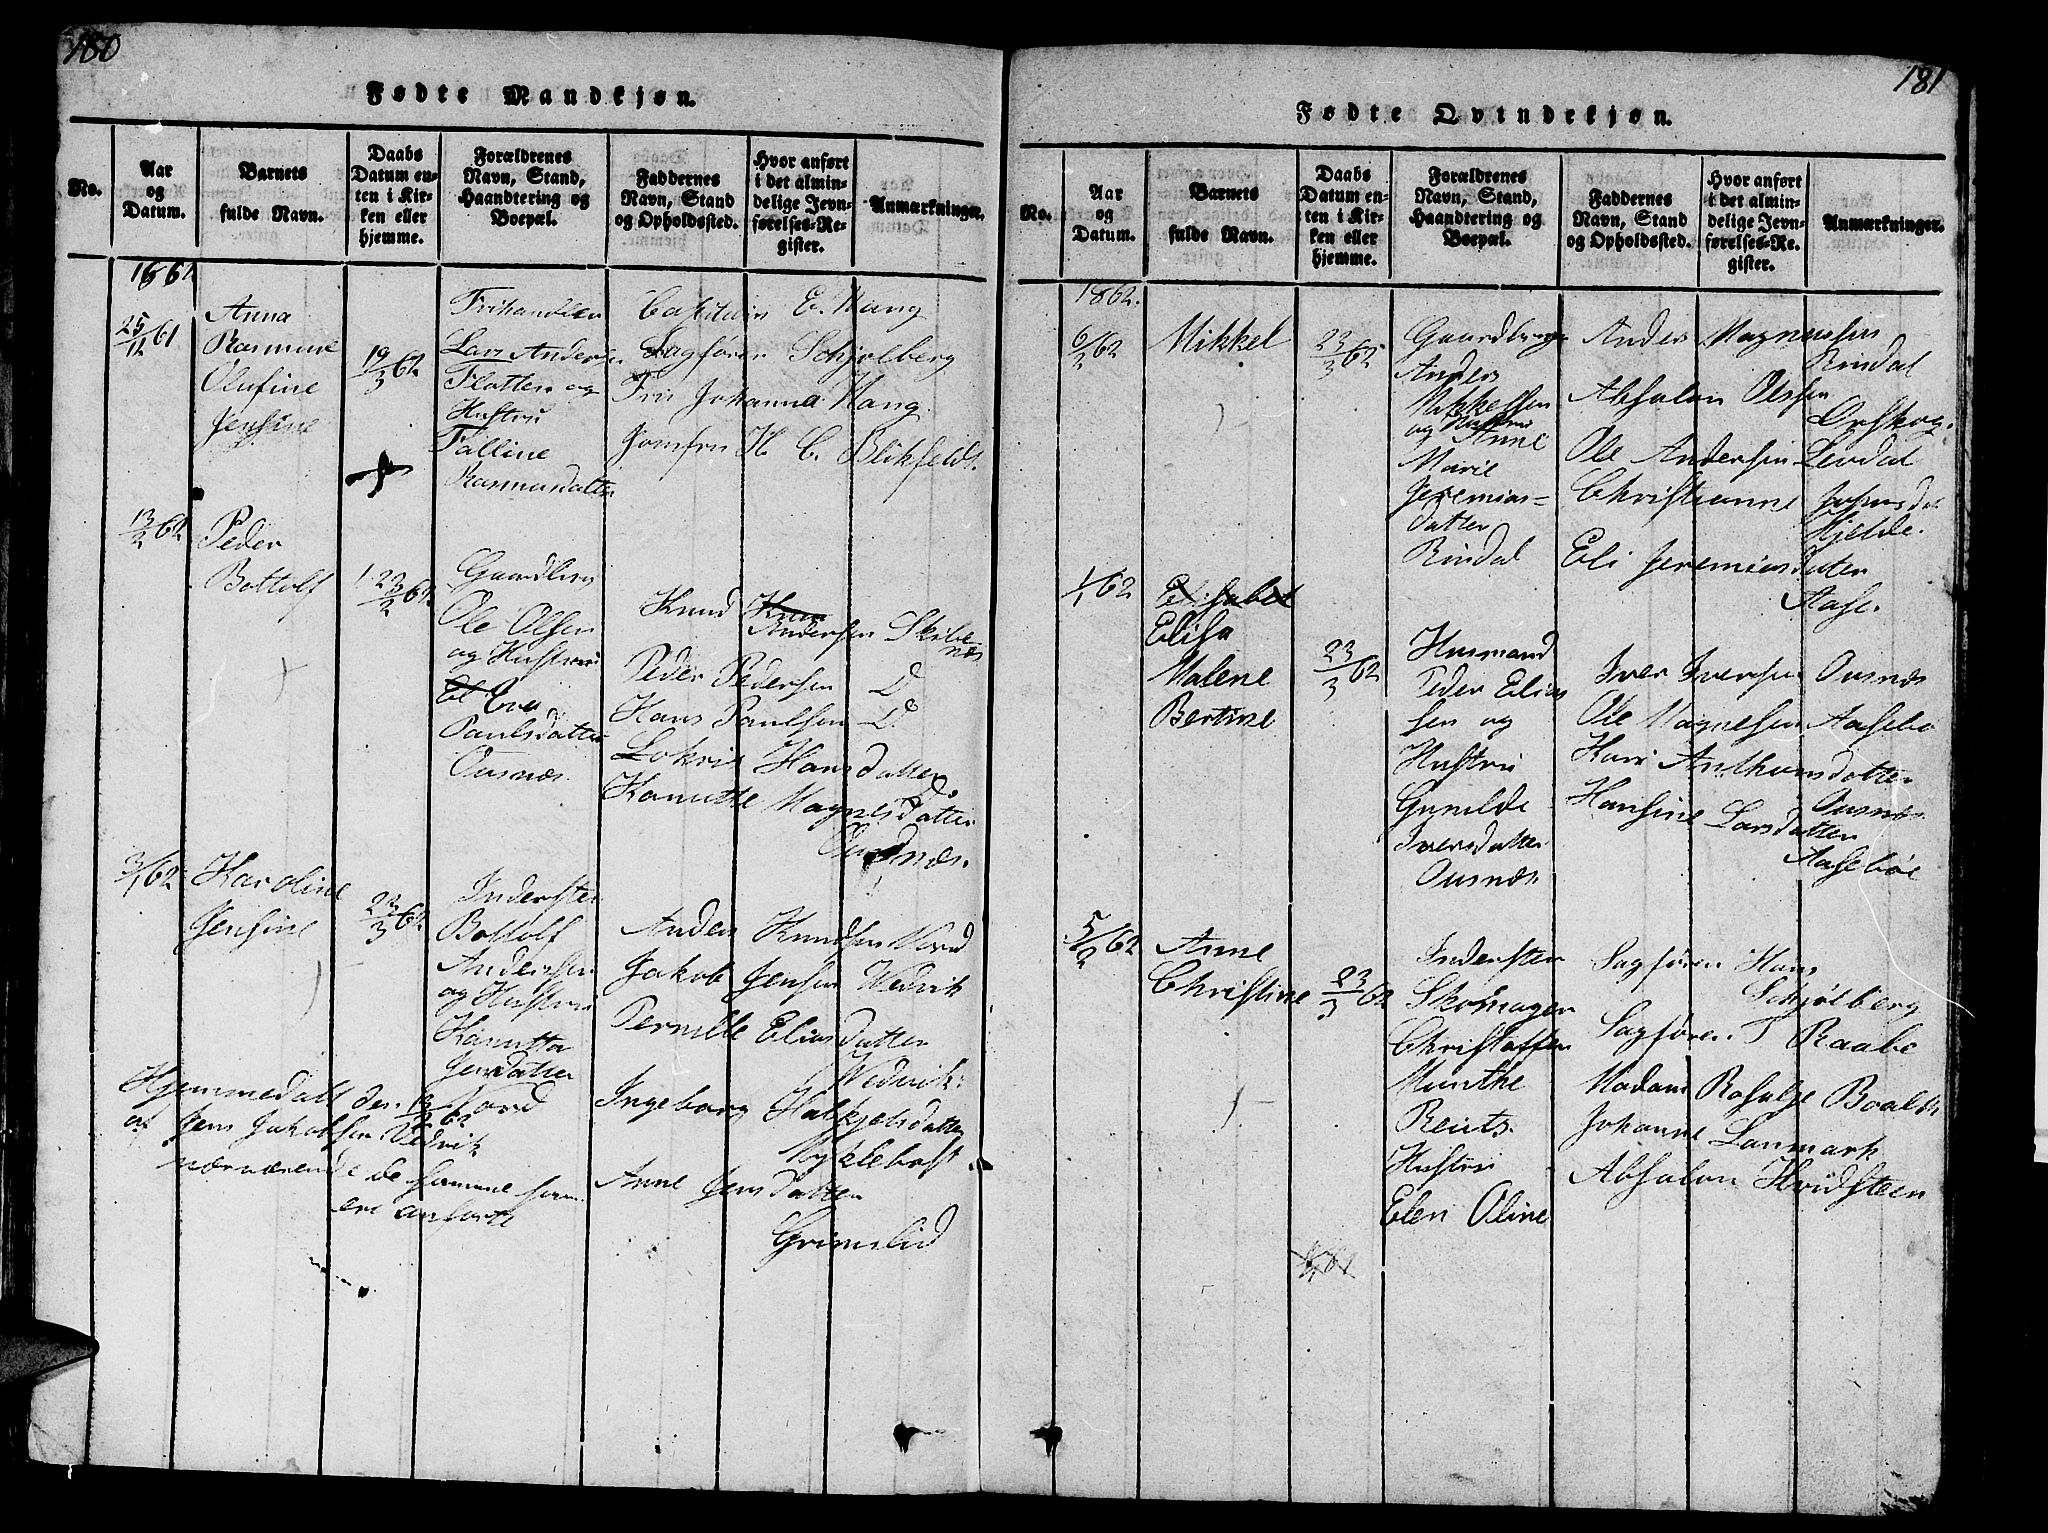 180
Fødte Mandkjøn.
No.
Aar
og
Datum.
Barnets
fulde Navn.
Daabs
Datum en-
ten i Kir-
ken eller
hjemme.
Forældrenes
Navn, Stand,
Haandtering og
Boepæl.
Faddernes
Navn, Stand
og Opholdssted.
Hvor anført
i det almin-
delige Jevn-
førelses-Re-
gister.
Anmærkninger.
1861
25/12 61
Anna
Rasmine
Olufine
Jensine
19/3 62
Frihandler
Lars Anders
Flotten og
Hustru
Talline
Rasmusdatter
Capitain E. Hang
Sagfører Schjølberg
Fru Johanna Hang
Jomfru H. C. Blikfeldt
13/2 62
Peder
Bottolf
23/2 62
Gaardbrug
Ole Olsen
og Hustru
El Ever
Paulsdatter
Ousnæs
Knud Knu
Andersen Skibe
næs
Peder Pedersen D
Hans Paulsen D.
Lokris Hansdatter
Do
Kanutte Magnesdatter
Ousnæs
3/1 62
Karoline
Jensine
23/3 62
Inderster
Bottolf
Andersen
og Hustru
Kanutta
Jensdatter
Vord
Anders Knudsen Vord
Jakob Jensen Wedvik
Pernille Eliasdatter
Wedvik
Ingeborg Halkjelsdatter
Myklebost
Anne Jensdatter
Grimslid
Hjemmedøbt den 13/2 62
af Jens Jakobsen Vedvik
nærværende de samme som
ere anførte
181
Fødte Qvindekjøn.
No.
Aar
og
Datum.
Barnets
fulde Navn.
Daabs
Datum en-
ten i Kir-
ken eller
hjemme.
Forældrenes
Navn, Stand,
Haandtering og
Boepæl.
Faddernes
Navn, Stand
og Opholdssted.
Hvor anført
i det almin-
delige Jevn-
førelses-Re-
gister.
Anmærkninger.
1862.
6/2 62
Mikkel
23/3 62
Gaardbrug
Anders
Mikkelsen
og Hustru
Anne
Marie
Jeremias-
datter
Rindal
Anders Magnussen
Rindal
Absalon Olsen
Ørskog.
Ole Andersen Levdal
Christianne Johnsdat
Hjelde.
Eli Jeremiasdatter
Aase.
1/1 62
Elisabet
Elisa
Malene
Bertine
23/3 62
Husmand
Peder Elias
sen og
Hustru
Gunilde
Iversdatter
Ousnæs
Iver Iversen Ousnæs
Ole Magnesen Aasebø
Kari Anthonsdatter
Ousnæs
Hansine Larsdatter
Aasebøe
5/2 62
Anne
Christine
23/3 62
Inderster
Skomager
Christoffer
Munthe
Reuts
Hustru
Elen Oline
Sagfører Hans
Schjølberg
Sagfører T Raabe
Madam Rosalse Boalth
Johanne Lanmark
Absalon Hvidsteen